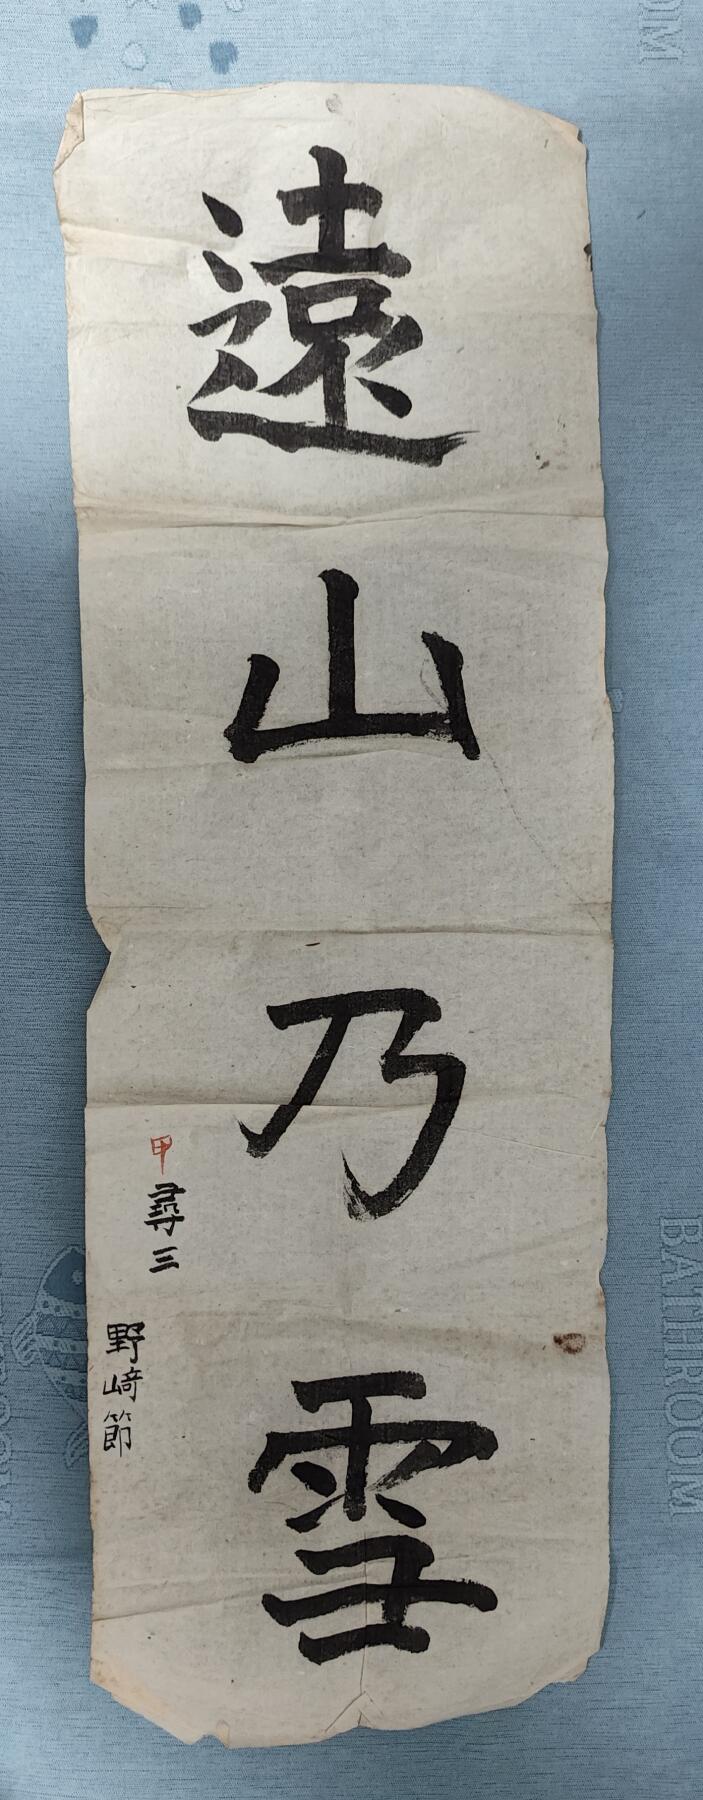 遠山乃雪
甲
尋三
野﨑節
BATHROOM
OM